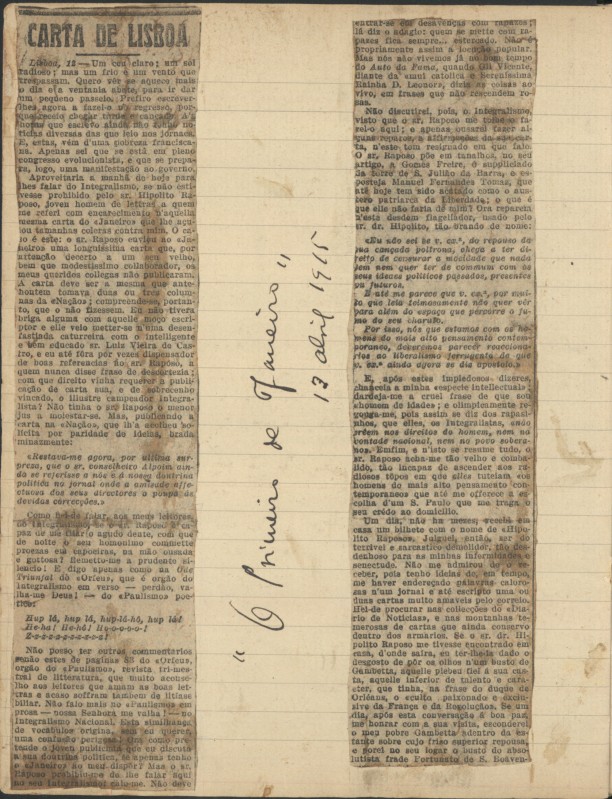 CARTA DE LISBOA
Lisboa, 12 — Um ceu claro; um sol
radioso; mas um frio e um vento que
trespassam. Quero vêr se aqueço mais
o dia e a ventania abate, para ir dar
um pequeno passeio. Prefiro escrever-
lhes agora a fazel-o no regresso, por-
que receio chegar tarde e cançado. A's
horas que escrevo ainda não tenho no-
ticias diversas das que leio nos jornaes.
E, estas, vêm d'uma pobreza francisca-
na. Apenas sei que se está em pleno
congresso evolucionista, e que se prepa-
ra, logo, uma manifestação ao governo.
Aproveitaria a manhã de hoje para
lhes falar do Integralismo, se não esti-
vesse prohibido pelo sr. Hipolito Ra-
poso, joven homem de letras, a quem
me referi com encarecimento n'aquella
mesma carta do «Janeiro» que lhe aque-
ceu tamanhas coleras contra mim. O ca-
so é este: o sr. Raposo enviou ao «Ja-
neiro» uma longuissima carta que, por
attenção decerto a um seu velho,
bem que modestissimo collaborador, os
meus queridos collegas não publicaram.
A carta deve ser a mesma que ante-
hontem tomava duas ou tres columnas
da «Nação»; comprehende-se, portan-
to, que o não fizessem. Eu não tivera
briga alguma com aquelle moço escri-
ptor e elle veio metter-se n'uma desen-
fastiada caturreira com o intelligente
e bem educado sr. Luis Vieira de Cas-
tro, e eu até fôra por vezes dispensador
de boas referencias ao sr. Raposo, a
quem nunca disse frase de descortezia:
com que direito vinha requerer a publi-
cação de carta sua, e de sobrecenho
vincado, o illustre campeador Integra-
lista? Não tinha o sr. Raposo o menor
jus a molestar-se. Mas, publicando a
carta na «Nação», que lh'a acolheu so-
licita por paridade de ideias, brada
iminazmente:
«Restava-me agora, por ultima sur-
preza, que o sr. conselheiro Alpoim ain-
da se referisse a nós e á nossa doutrina
politica no jornal onde a amizade affe-
ctuosa dos seus directores o poupa de
devidas correcções.»
no Integralismo
paz de me
de noite o seu homonimo commette
proezas em capoeiras, na mão ousada
e gottosa? Remetto-me a prudente si-
lencio! E digo apenas como na Ode
Triunfal do «Orfeu», que é orgão do
Integralismo em verso — perdão, va-
lha-me Deus! — do «Paulismo» poe-
tico:
Hup lá, hup lá, hup-lá-hó, hup lá!
He-ha! He-hó! Ho-o-o-o-o!
Z-z-z-z-z-z-z-z-z-z!
Não posso ter outros commentarios
senão estes de paginas 83 do «Orfeu»,
orgão do «Paulismo», revista tri-mes-
tral de litteratura, que muito aconse-
lho aos leitores que amam as boas let-
ras e acaso soffram tambem de litiase
biliar. Não falo mais no «Paulismo» em
prosa — nossa Senhora me valha! — no
Integralismo Nacional. Esta similhança
de vocabulos origina, sem eu querer,
uma confusão perigosa! Mas como pre-
tende o joven publicista que eu discuta
a sua doutrina politica, se apenas tenho
o «Janeiro» ao meu dispôr? Mas o sr.
Raposo prohibiu-me de lhe falar aqui
no seu Integralismo! calo-me. Não deve
"O Primeiro de Janeiro"
13 abril 1915
entrar-se em desavenças com rapazes;
lá diz o adagio: quem se mette com ra-
pazes fica sempre... estornado. Não é
propriamente assim a locução popular.
Mas nós não vivemos já no bom tempo
do Auto da Fama, quando Gil Vicente,
diante da «mui catolica e serenissima
Rainha D. Leonor», dizia as coisas ao
vivo, em frases que não rescendem ro-
sas.
Não discutirei, pois, o Integralismo,
visto que o sr. Raposo me tolhe o fa-
zel-o aqui; e apenas ousarei fazer al-
guns reparos, a affirmações da sua car-
ta, n'este tom resignado em que falo.
O sr. Raposo põe em tanalhos, no seu
artigo, a Gomes Freire, o suppliciado
da torre de S. Julião da Barra, e es-
posteja Manuel Fernandes Tomás, que
até hoje tem sido acatado como o aus-
tero patriarca da Liberdade: o que é
que elle não faria de mim? Ora reparem
n'este desdem flagellador, usado pelo
sr. dr. Hipolito, tão brando de nome:
«Eu não sei se v. ex.ª, do repouso da
sua cançada poltrona, chega a ter di-
reito de censurar a mocidade que nada
tem nem quer ter de commum com os
seus ideaes politicos passados, presentes
ou futuros.
E até me parece que v. ex.ª, por mui-
to que leia teimosamente não quer vêr
para além do espaço que percorre o fu-
mo do seu charuto.
Por isso, nós que estamos com os ho-
mens do mais alto pensamento contem-
poraneo, deveremos parecer reacciona-
rios ao liberalismo ferrugento de que
v. ex.ª ainda agora se diz apostolo.»
E, após estes impiedosos dizeres,
chancela a minha «esperte intellectual»;
dardeja-me a cruel frase de que sou
«homem de idade»; e olimplicamente re-
poga-me, pois assim se diz dos rapasi-
nhos, que elles, os Integralistas, «não
crêem nos direitos do homem, nem na
vontade nacional, nem no povo sobera-
no». Emfim, e n'isto se resume tudo, o
sr. Raposo acha-me tão velho e comba-
lido, tão incapaz de ascender aos ra-
diosos tôpos em que elles tutelam «os
homens do mais alto pensamento con-
temporaneo» que até me offerece a es-
colha d'um S. Paulo que me traga o
seu crédo ao domicilio.
Um dia, não ha mezes, recebi em
casa um bilhete com o nome de «Hipo-
lito Raposo». Julguei, então, ser do
terrivel e sarcastico demolidor, tão des-
denhoso para as minhas infermidades e
senectude. Não me admirou de o re-
ceber, pois tenho ideias de, em tempo,
me haver endereçado palavras caloro-
sas n'um jornal e até escripto uma ou
duas cartas muito amaveis pelo correio.
Hei-de procurar nas collecções do «Dia-
rio de Noticias», e nas montanhas te-
merosas de cartas que ainda conservo
dentro dos armarios. Se o sr. dr. Hi-
polito Raposo me tivesse encontrado em
casa, d'onde sairá, eu ter-lhe-ia dado o
desgosto de pôr os olhos n'um busto de
Gambetta, aquelle plebeu fiel á sua cas-
ta, aquelle inferior de talento e cara-
cter, que tinha, na frase do duque de
Orléans, o «culto apaixonado e exclu-
sivo da França e da Revolução». Se um
dia, após esta conversação á boa paz,
me honrar com a sua visita, esconderei
o meu pobre Gambetta «dentro da es-
tante sobre cujo friso superior repousa,
e porei no seu logar o busto do abso-
lutista frade Fortunato de S. Boaven-